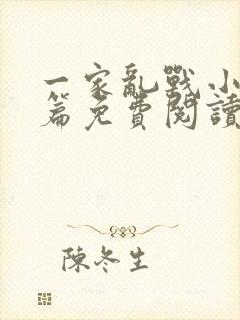 一家亂戰小
篇免費閱讀
陳冬生